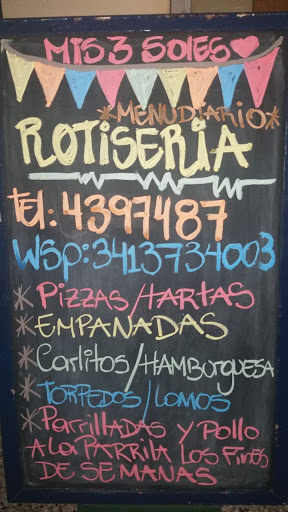 MIS 3 SOLES
*MENU DIARIO*
ROTISERIA
tel: 4397487
WSP: 3413734003
* PIZZAS/tARtAS
* EMPANADAS
* Carlitos/HAMBURGUESA
* TORPEDOS/LOMOS
* Parrilladas y Pollo
A La PARRILA LOS FINES
DE SEMANAS